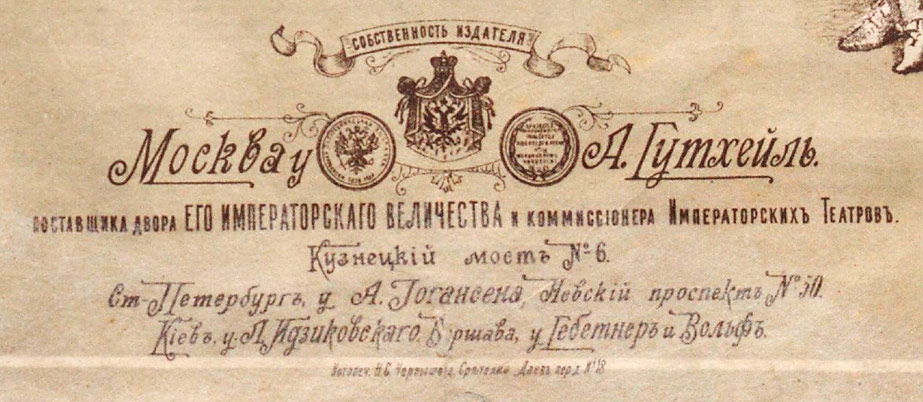 СОБСТВЕННОСТЬ ИЗДАТЕЛЯ
Москва у А. Гутхейль.
ПОСТАВЩИКА ДВОРА ЕГО ИМПЕРАТОРСКАГО ВЕЛИЧЕСТВА И КОММИССІОНЕРА ИМПЕРАТОРСКИХЪ ТЕАТРОВЪ.
Кузнецкій мостъ № 6.
Ст-Петербургъ, у А. Іогансена, Невскій проспектъ № 50.
Кіевъ, у Л. Идзиковскаго. Варшава, у Гебетнеръ и Вольфъ.
Н.С. Чернышъ Срѣтенка № 18